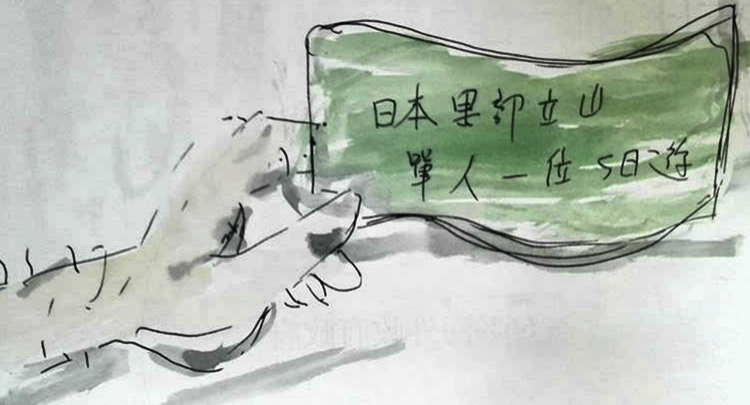 日本黑部立山
單人一位5日遊